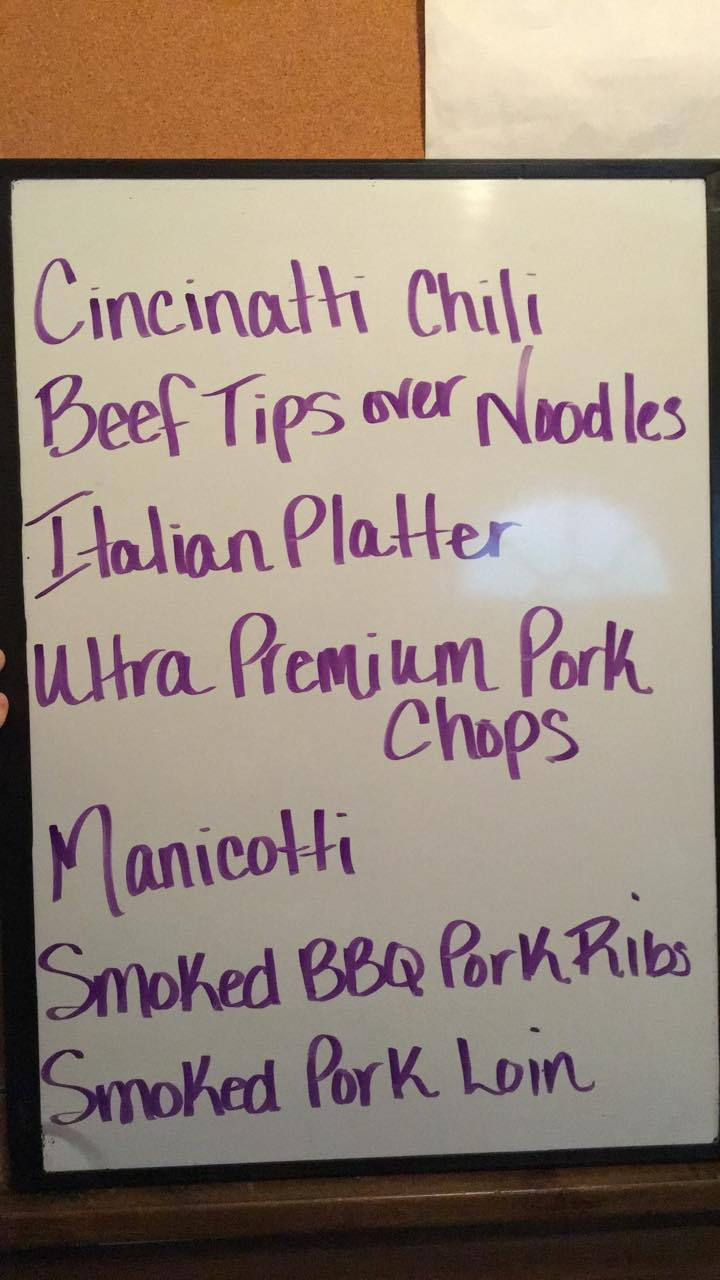 Cincinatti Chili
Beef Tips over Noodles
Italian Platter
Ultra Premium Pork
Chops
Manicotti
Smoked BBQ Pork Ribs
Smoked Pork Loin